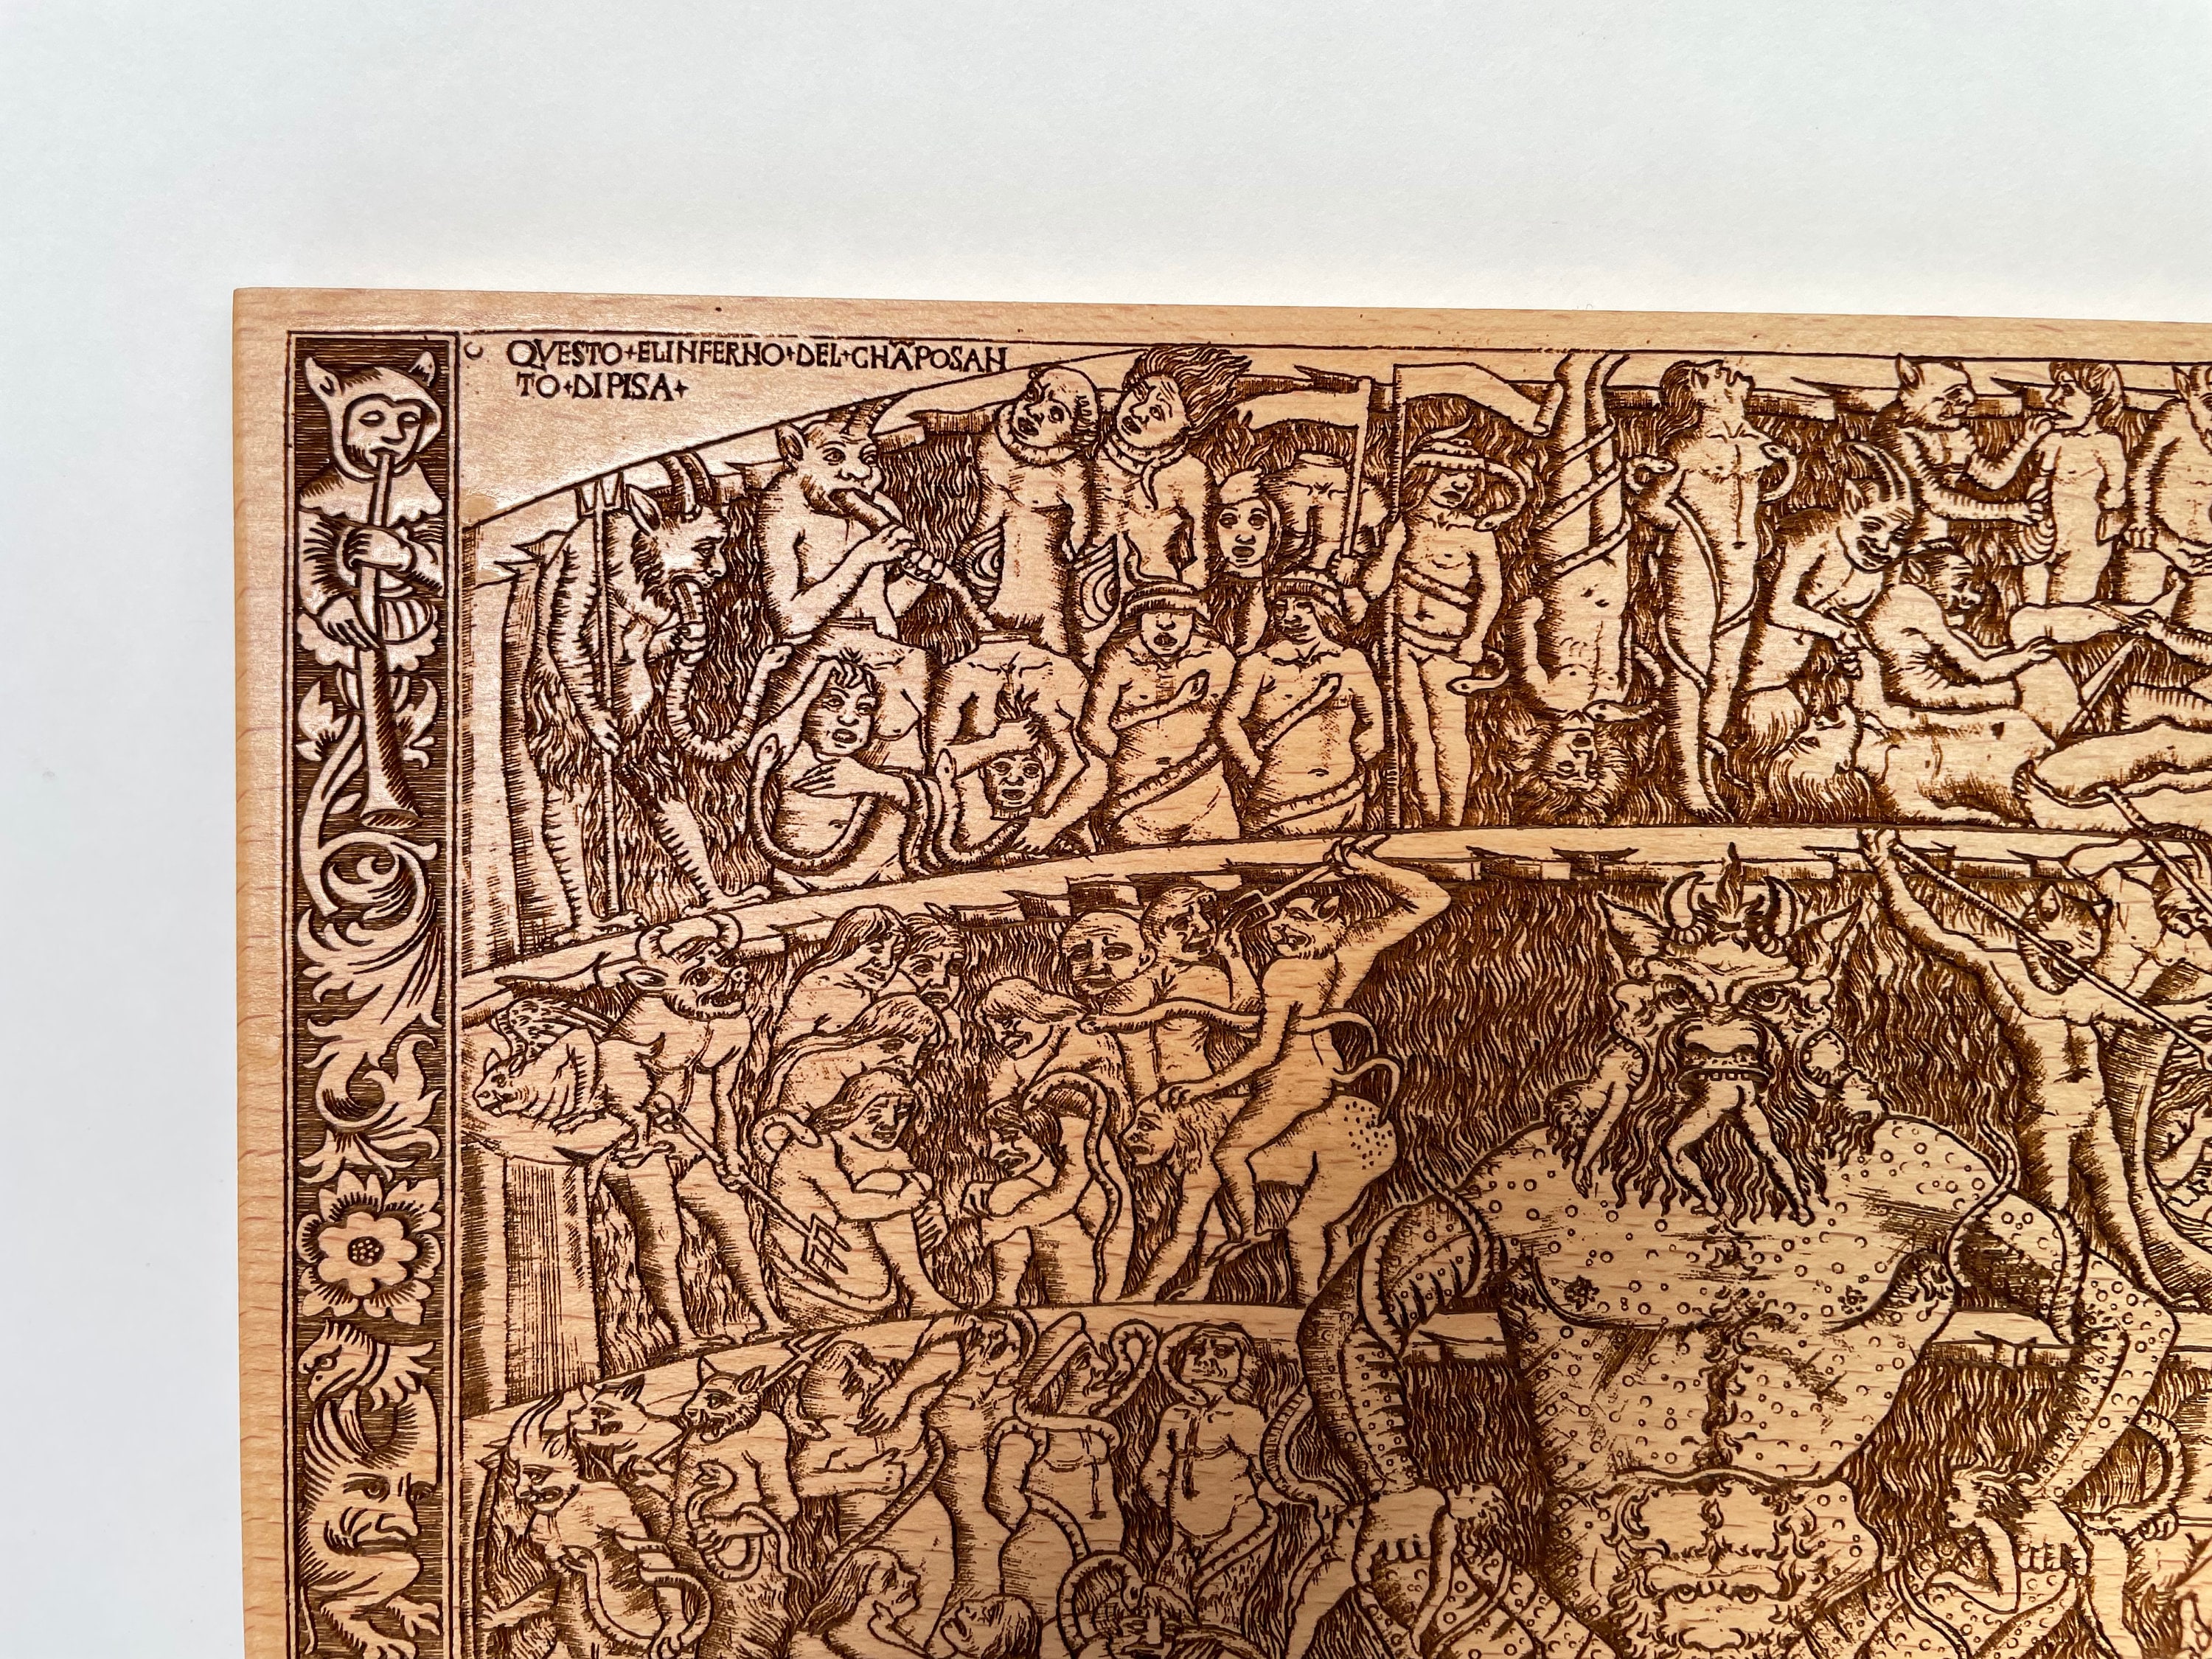 QVESTO+ELINFERNO+DEL+CHĀPOSAN
TO+DIPISA+